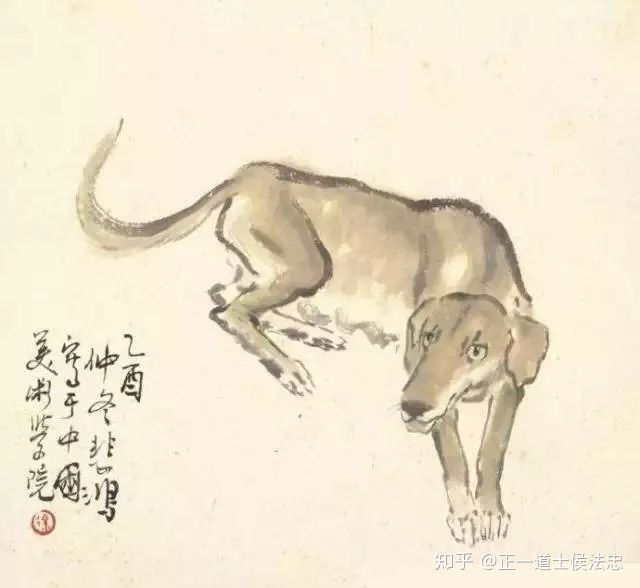 乙酉
仲冬悲鸿
写于中國
美術學院
知乎 @正一道士侯法忠